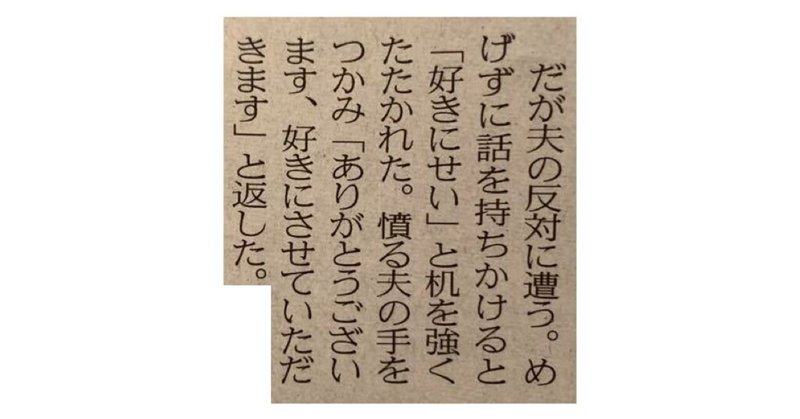 だが夫の反対に遭う。め
げずに話を持ちかけると
「好きにせい」と机を強く
たたかれた。憤る夫の手を
つかみ「ありがとうござい
ます、好きにさせていただ
きます」と返した。